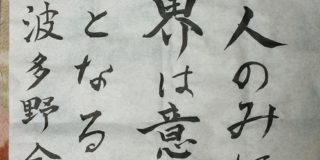 人のみ
界は意
となる
波多野